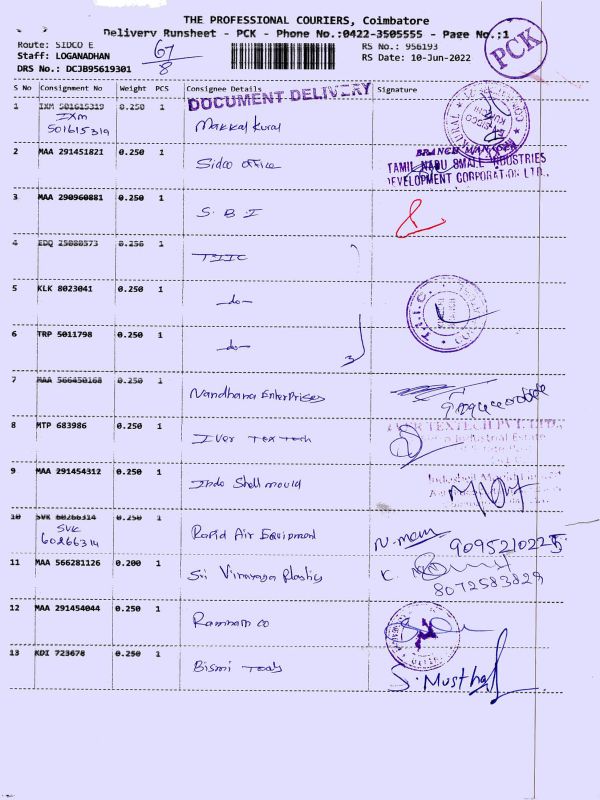 THE PROFESSIONAL COURIERS, Coimbatore
Delivery Runsheet - PCK - Phone No.:0422-3505555 - Page No.:1
Route: SIDCO E
67/8
RS No.: 956193
PCK
Staff: LOGANADHAN
RS Date: 10-Jun-2022
DRS No.: DCJB95619301
S No Consignment No Weight PCS Consignee Details Signature
DOCUMENT DELIVERY
1 IXM 501615319 0.250 1
IXM
501615319
Makkal Kural
BRANCH MANAGER
2 MAA 291451821 0.250 1 Sidco office
TAMIL NADU SMALL INDUSTRIES
DEVELOPMENT CORPORATION LTD.,
3 MAA 290960881 0.250 1 S.B.I
4 EDQ 25080573 0.250 1 TIIC
5 KLK 8023041 0.250 1 -do-
T.I.I.C.
6 TRP 5011798 0.250 1 -do- 3
7 MAA 566450168 0.250 1 Nandhana Enterprises
8 MTP 683986 0.250 1 Iver Tex Tech
TEXTECH PVT. LTD.,
Industrial Estate
9 MAA 291454312 0.250 1 Indo Shell mould
10 SVK 60266314 0.250 1
SVK
60266314
Rapid Air Equipment N. mani 9095210225
11 MAA 566281126 0.200 1 Sri Vinayaga Plastics K. 8072583829
12 MAA 291454044 0.250 1 Ramnam co
13 KDI 723678 0.250 1 Bismi Tools S. Mustha